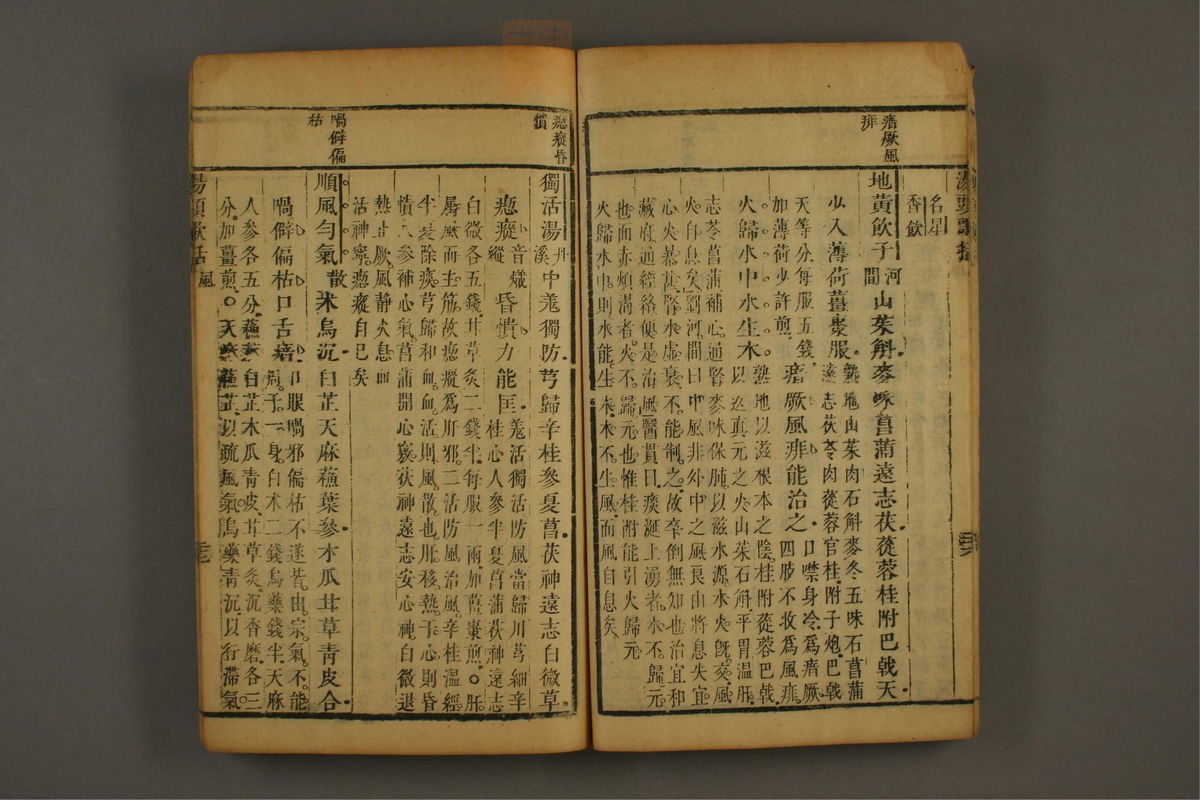 瘖厥風
痱
名星
香飲
地黃飲子河間山茱斛麥味菖蒲遠志茯蓯蓉桂附巴戟天
少入薄荷薑棗服熟地山茱肉石斛麥冬五味石菖蒲
遠志茯苓肉蓯蓉官桂附子炮巴戟
天等分每服五錢瘖厥風痱能治之口噤身冷爲瘖厥
加薄荷少許煎四肢不收爲風痱
火歸水中水生木熟地以滋根本之陰桂附蓯蓉巴戟
以返真元之火山茱石斛平胃溫肝
志苓菖蒲補心通腎麥味保肺以滋水源水火旣交風
火自息矣劉河間曰中風非外中之風良由將息失宜
心火暴甚腎水虛衰不能制之故卒倒無知也治宜和
藏府通經絡便是治風醫貫曰痰涎上湧者水不歸元
也面赤煩渴者火不歸元也惟桂附能引火歸元
火歸水中則水能生木木不生風而風自息矣
瘛瘲昏
憒
獨活湯丹溪中羗獨防芎歸辛桂參夏菖茯神遠志白薇草
瘛瘲音熾縱昏憒力能匡羗活獨活防風當歸川芎細辛
桂心人參半夏菖蒲茯神遠志
白薇各五錢甘草炙二錢半每服一兩加薑棗煎○肝
屬風而主筋故瘛瘲爲肝邪二活防風治風辛桂溫經
半夏除痰芎歸和血血活則風散也肝移熱于心則昏
憒人參補心氣菖蒲開心竅茯神遠志安心神白薇退
熱止厥風靜火息血
活神寧瘛瘲自已矣
喎僻偏
枯
順風勻氣散朮烏沉白芷天麻蘓葉參木瓜甘草青皮合
喎僻偏枯口舌瘖口眼喎邪偏枯不遂皆由宗氣不能
周于一身白朮二錢烏藥錢半天麻
人參各五分蘓葉白芷木瓜青皮甘草炙沉香磨各三
分加薑煎○天麻蘓芷以疏風氣烏藥青沉以行滯氣
湯頭歌括
風